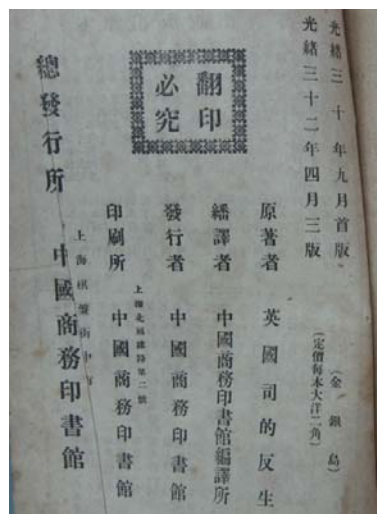 光緒三十年九月首版
光緒三十二年四月三版
(金銀島)
(定價每本大洋二角)
翻印必究
原著者 英國司的反生
繙譯者 中國商務印書館編譯所
發行者 中國商務印書館
上海北福建路第二號
印刷所 中國商務印書館
上海棋盤街中市
總發行所 中國商務印書館